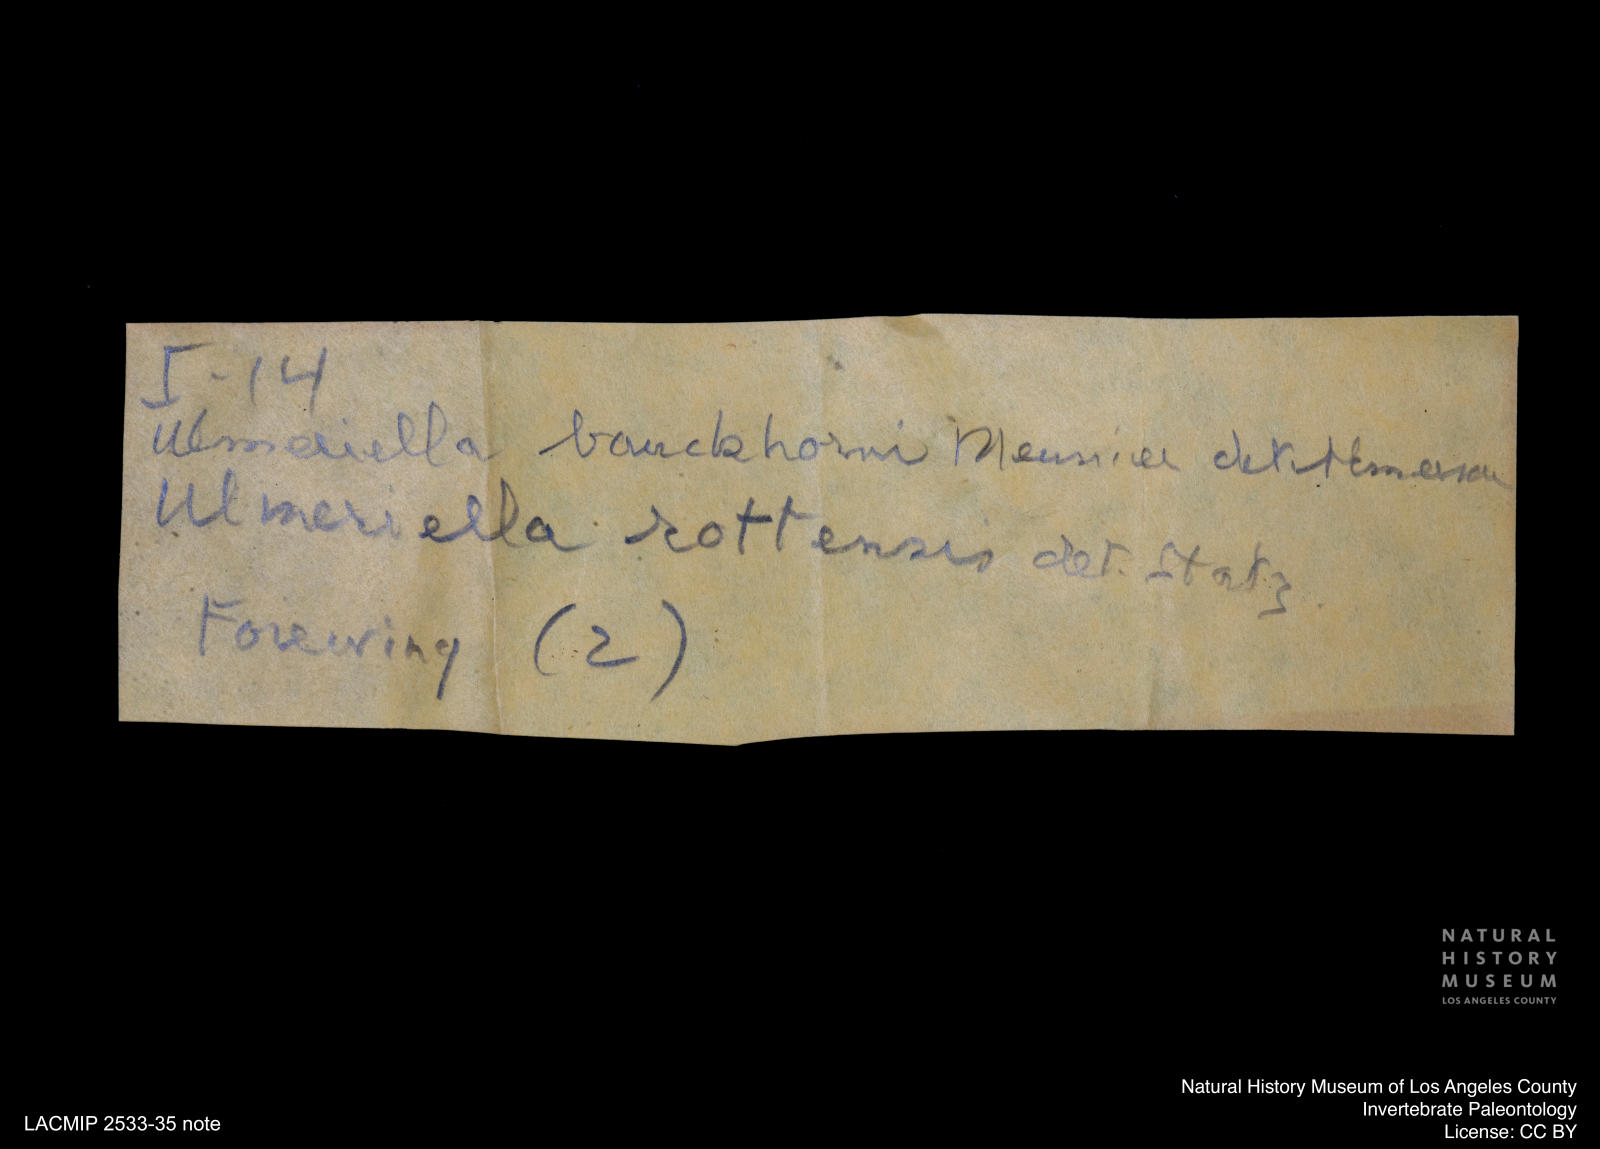 I-14
Ulmeriella bauckhorni Meunier det. Emerson
Ulmeriella rottensis det. Statz.
Forewing (2)
NATURAL
HISTORY
MUSEUM
LOS ANGELES COUNTY
Natural History Museum of Los Angeles County
Invertebrate Paleontology
License: CC BY
LACMIP 2533-35 note